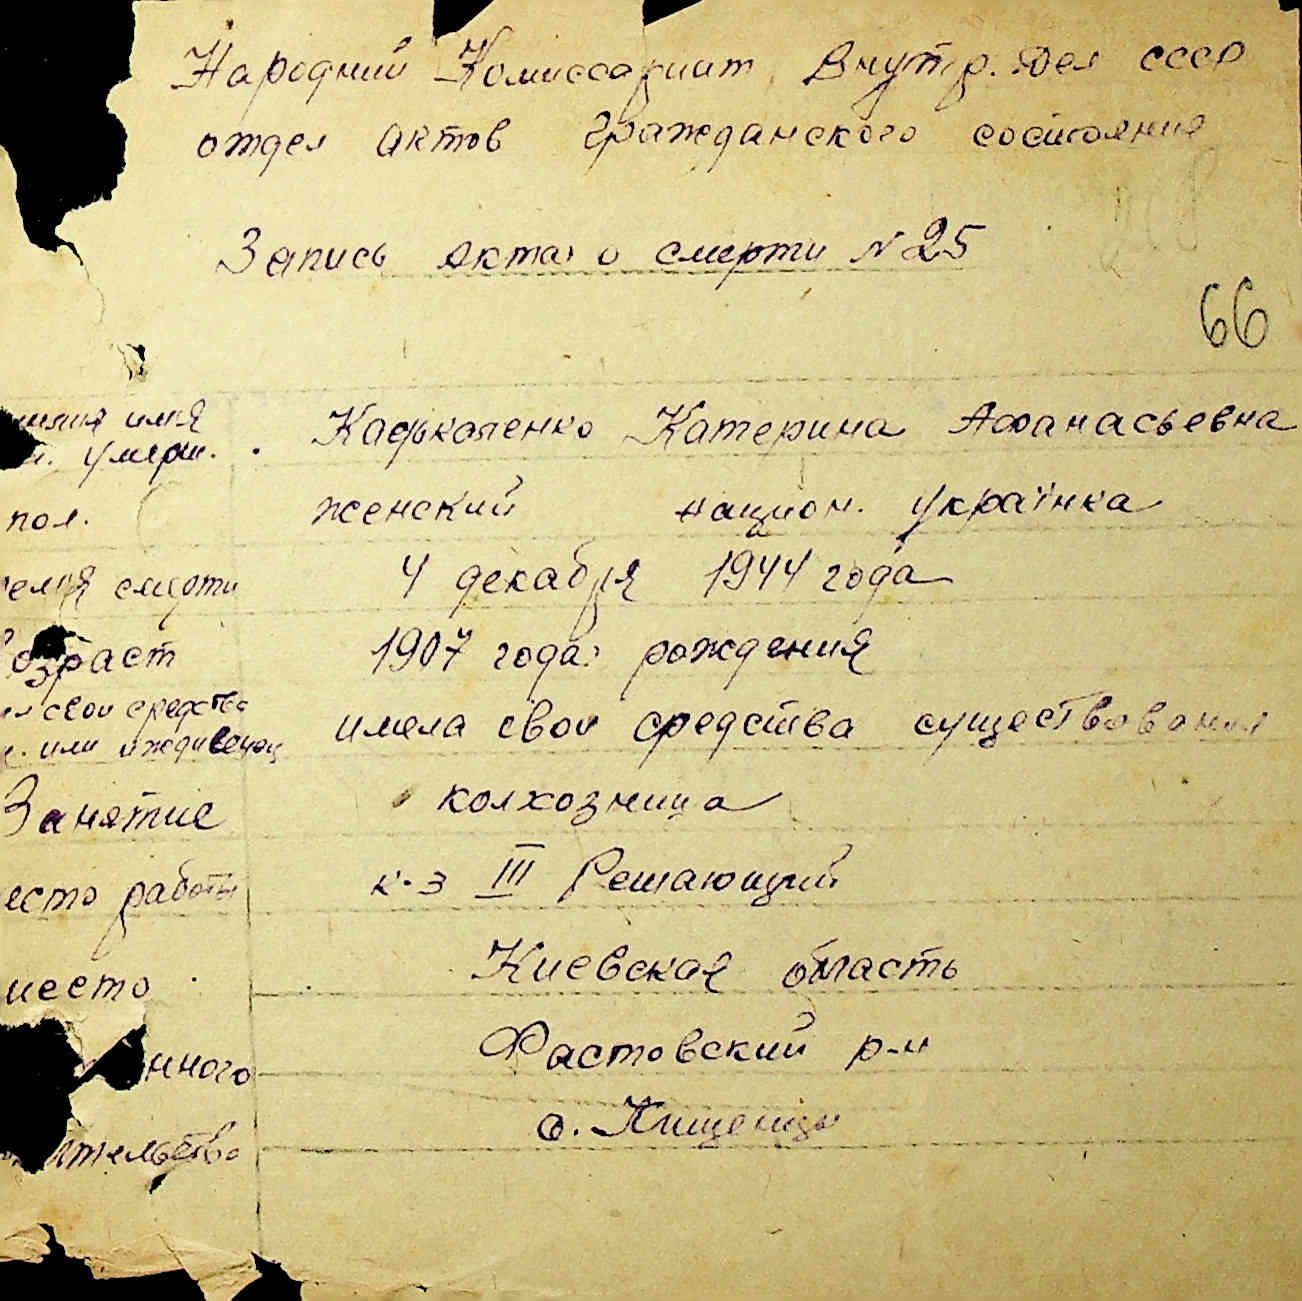 Народний Комиссариат Внутр. Дел СССР
отдел актов гражданского состояния
Запись акта о смерти N 25
66
имя
умерш. Катерина Афанасьевна
пол. женский национ. українка
смерти 4 декабря 1944 года
возраст 1907 года рождения
свои средства
или иждивенец имела свои средства существования
Занятие колхозница
место работы к-з III Решающий
место Киевская область
нного Фастовский р-н
ительство с.